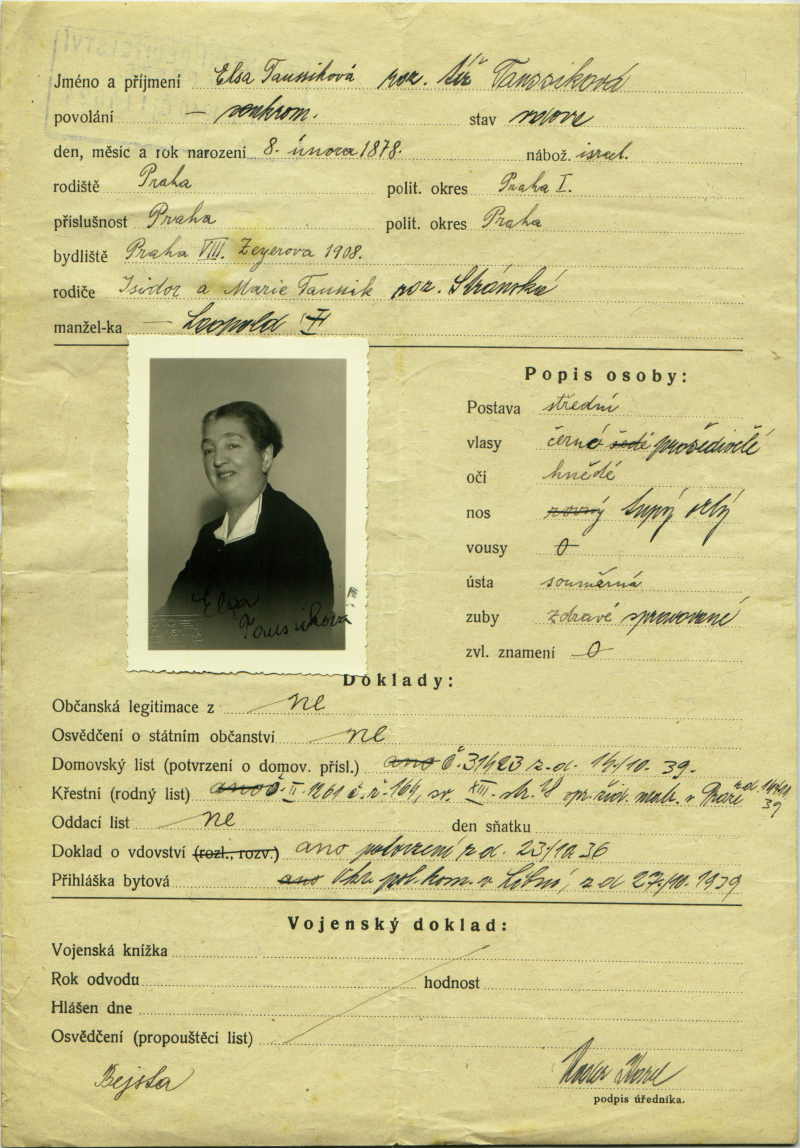 Jméno a příjmení Elsa Taussiková roz. též Taussiková
povolání — soukrom. stav vdova
den, měsíc a rok narození 8. února 1878. nábož. israel.
rodiště Praha polit. okres Praha I.
příslušnost Praha polit. okres Praha
bydliště Praha VIII. Zeyerova 1908.
rodiče Isidor a Marie Taussik roz. Stránská
manžel-ka — Leopold
Popis osoby:
Postava střední
vlasy černé šedé prošedivělé
oči hnědé
nos rovný tupý
vousy 0
ústa souměrná
zuby zdravé spravované
zvl. znamení 0
Elsa
Taussiková
Doklady:
Občanská legitimace z ne
Osvědčení o státním občanství ne
Domovský list (potvrzení o domov. přísl.) ano č. 31423 z. d. 14/10. 39.
Křestní (rodný list) ano č. II- 1261 č. ř. 164, sv. XIII. str. žid. matr. v Praze z d.
39
Oddací list ne den sňatku
Doklad o vdovství (rozl., rozv.) ano potvrzení z d. 23/10 36
Přihláška bytová ano pol. kom. v Libni, z d 27/10. 1939
Vojenský doklad:
Vojenská knížka
Rok odvodu hodnost
Hlášen dne
Osvědčení (propouštěcí list)
Bejsta
podpis úředníka.